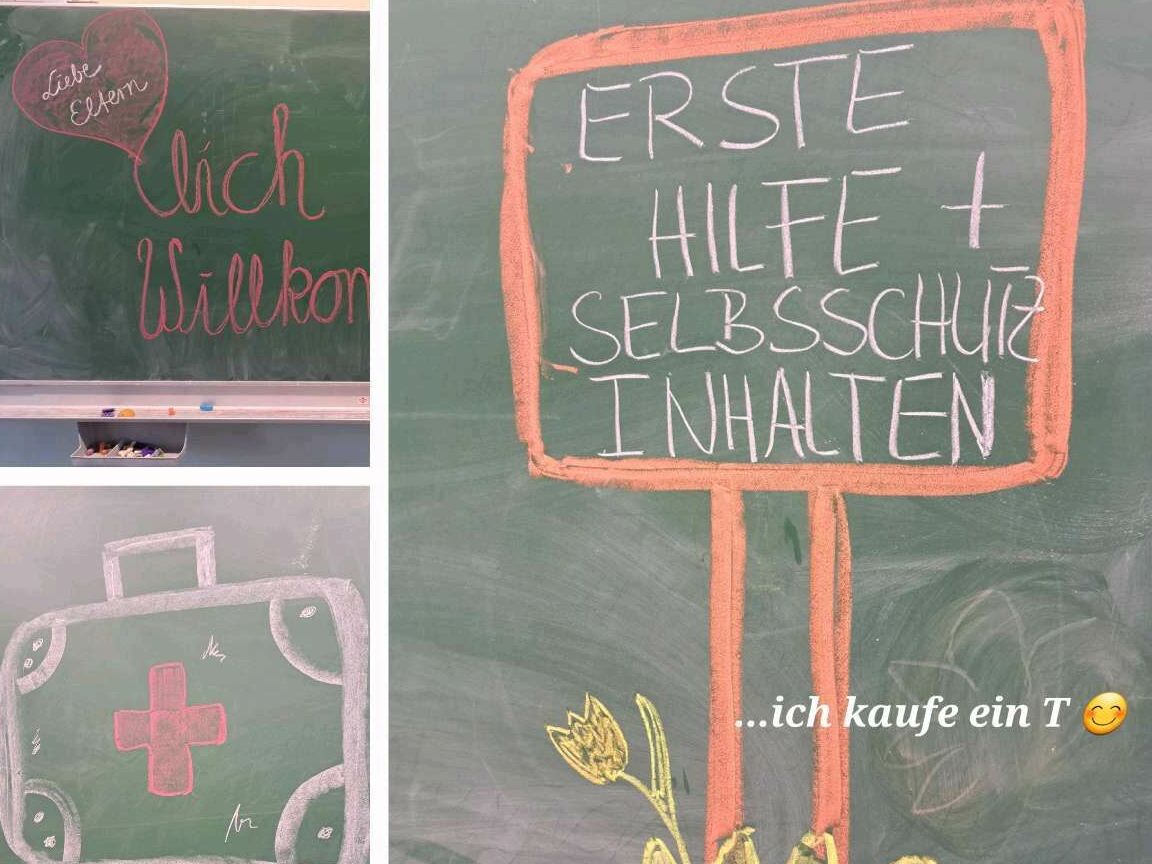 Liebe
Eltern
lich
Willkom
ERSTE
HILFE +
SELBSSCHUTZ
INHALTEN
...ich kaufe ein T 😊